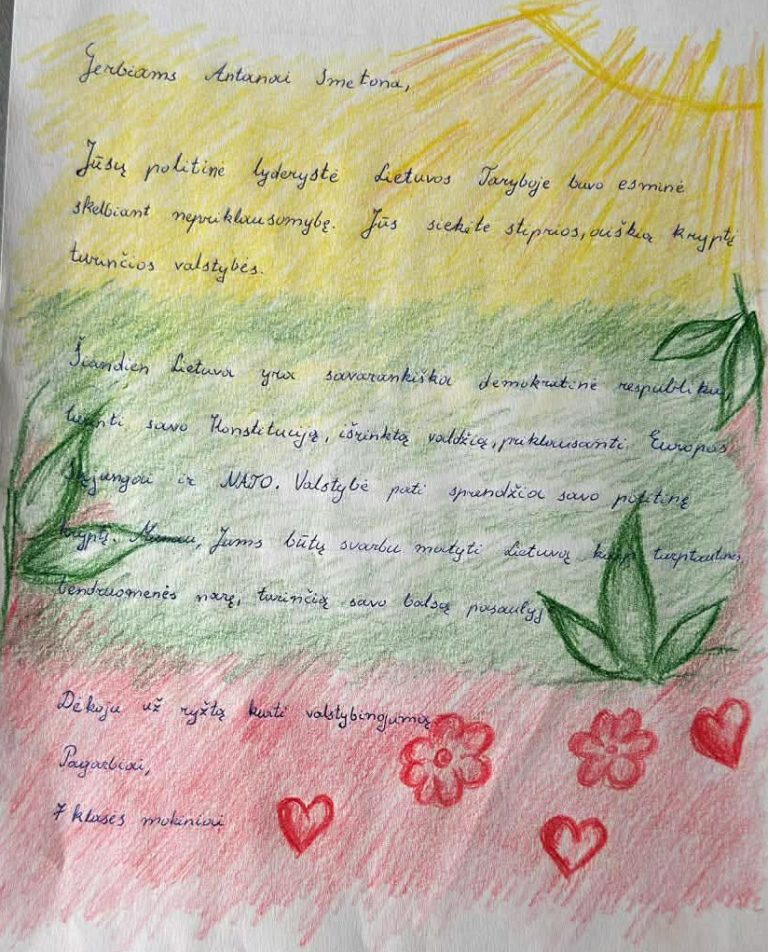 Gerbiams Antanai Smetona,
Jūsų politinė lyderystė Lietuvos Taryboje buvo esminė
skelbiant nepriklausomybę. Jūs siekėte stiprios, aiškią kryptį
turinčios valstybės.
Šiandien Lietuva yra savarankiška demokratinė respublika,
turinti savo Konstituciją, išrinktą valdžią, priklausanti Europos
Sąjungai ir NATO. Valstybė pati sprendžia savo politinę
kryptį. Manau, Jums būtų svarbu matyti Lietuvą kaip tarptautinės
bendruomenės narę, turinčią savo balsą pasaulyje
Dėkoju už ryžtą kurti valstybingumą
Pagarbiai,
7 klasės mokiniai